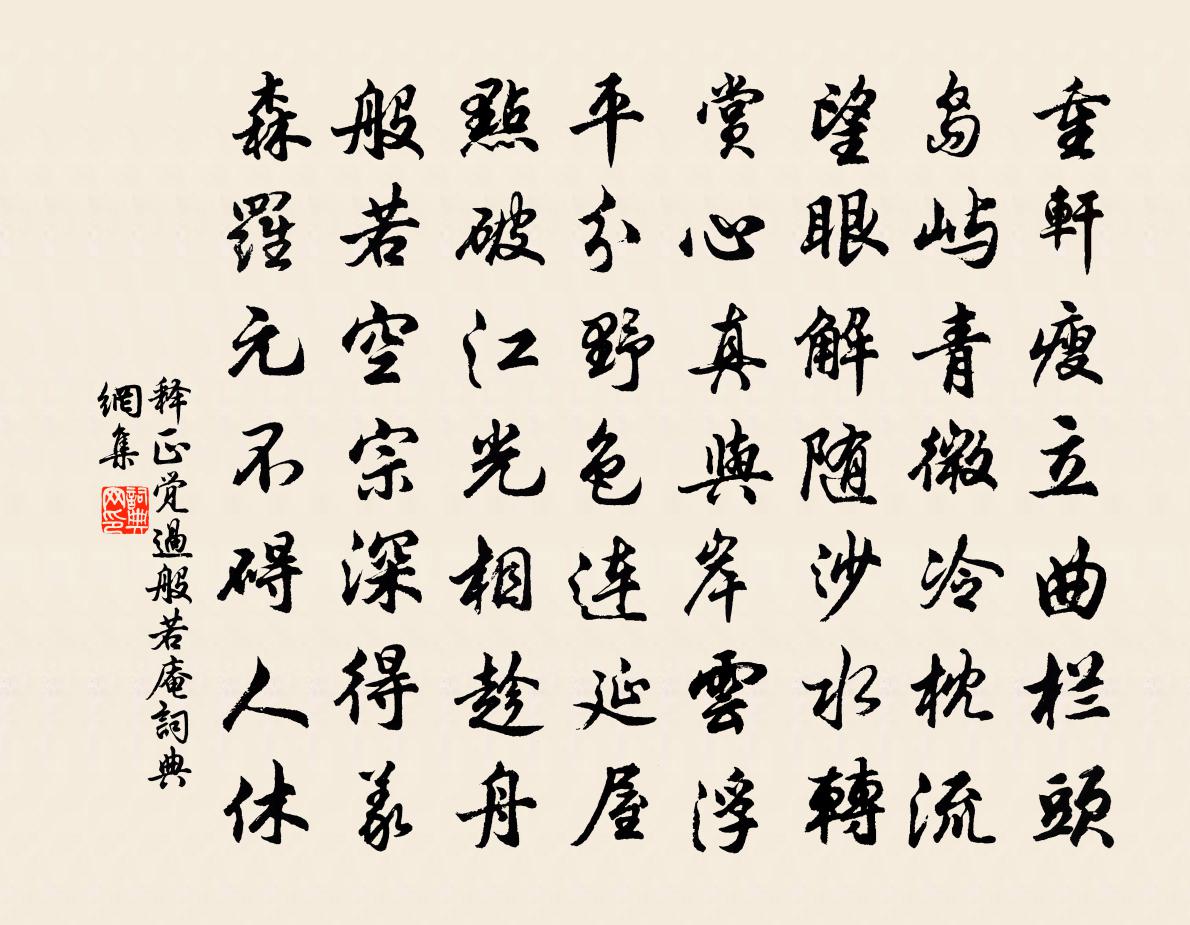 重軒瘦立曲栏頭
島屿青微冷枕流
望眼解随沙水轉
赏心真與岸雲浮
平分野色連延屋
點破江光相趁舟
般若空宗深得义
森羅元不碍人休
释正觉過般若庵詞典
網集
詞典
网印